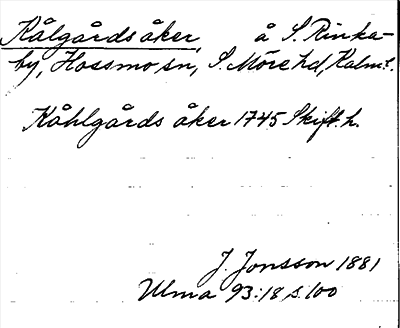 Kålgårdsåker, å S. Rinka-
by, Hossmo sn, S. Möre hd, Kalm. l.
Kåhlgårds åker 1745 Skift. h.
J. Jonsson 1881
Ulma 93:18 s. 100